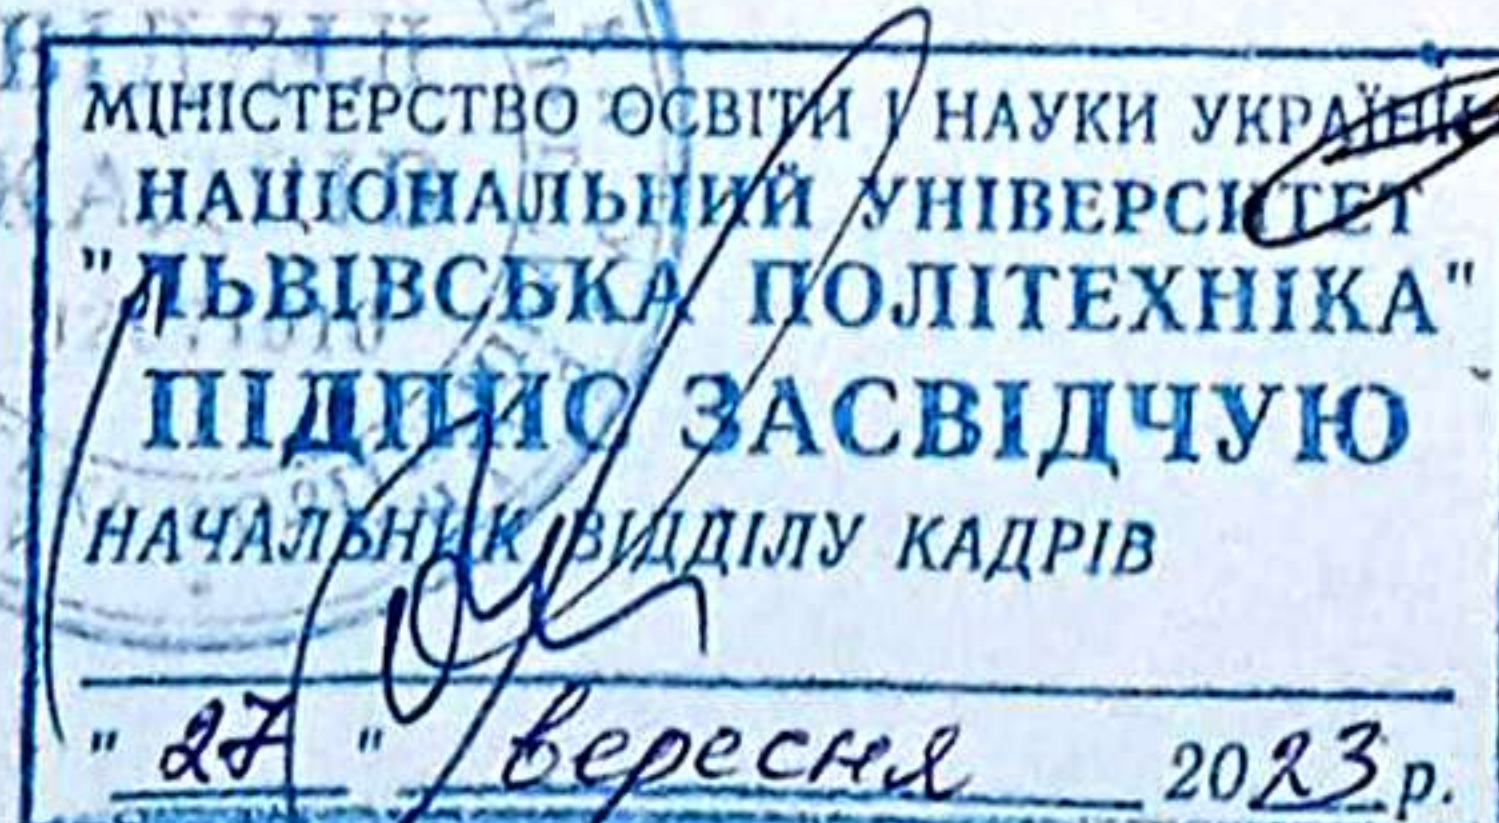 МІНІСТЕРСТВО ОСВІТИ І НАУКИ УКРАЇНИ
НАЦІОНАЛЬНИЙ УНІВЕРСИТЕТ
"ЛЬВІВСЬКА ПОЛІТЕХНІКА"
ПІДПИС ЗАСВІДЧУЮ
НАЧАЛЬНИК ВІДДІЛУ КАДРІВ
" 27 " вересня 2023 р.